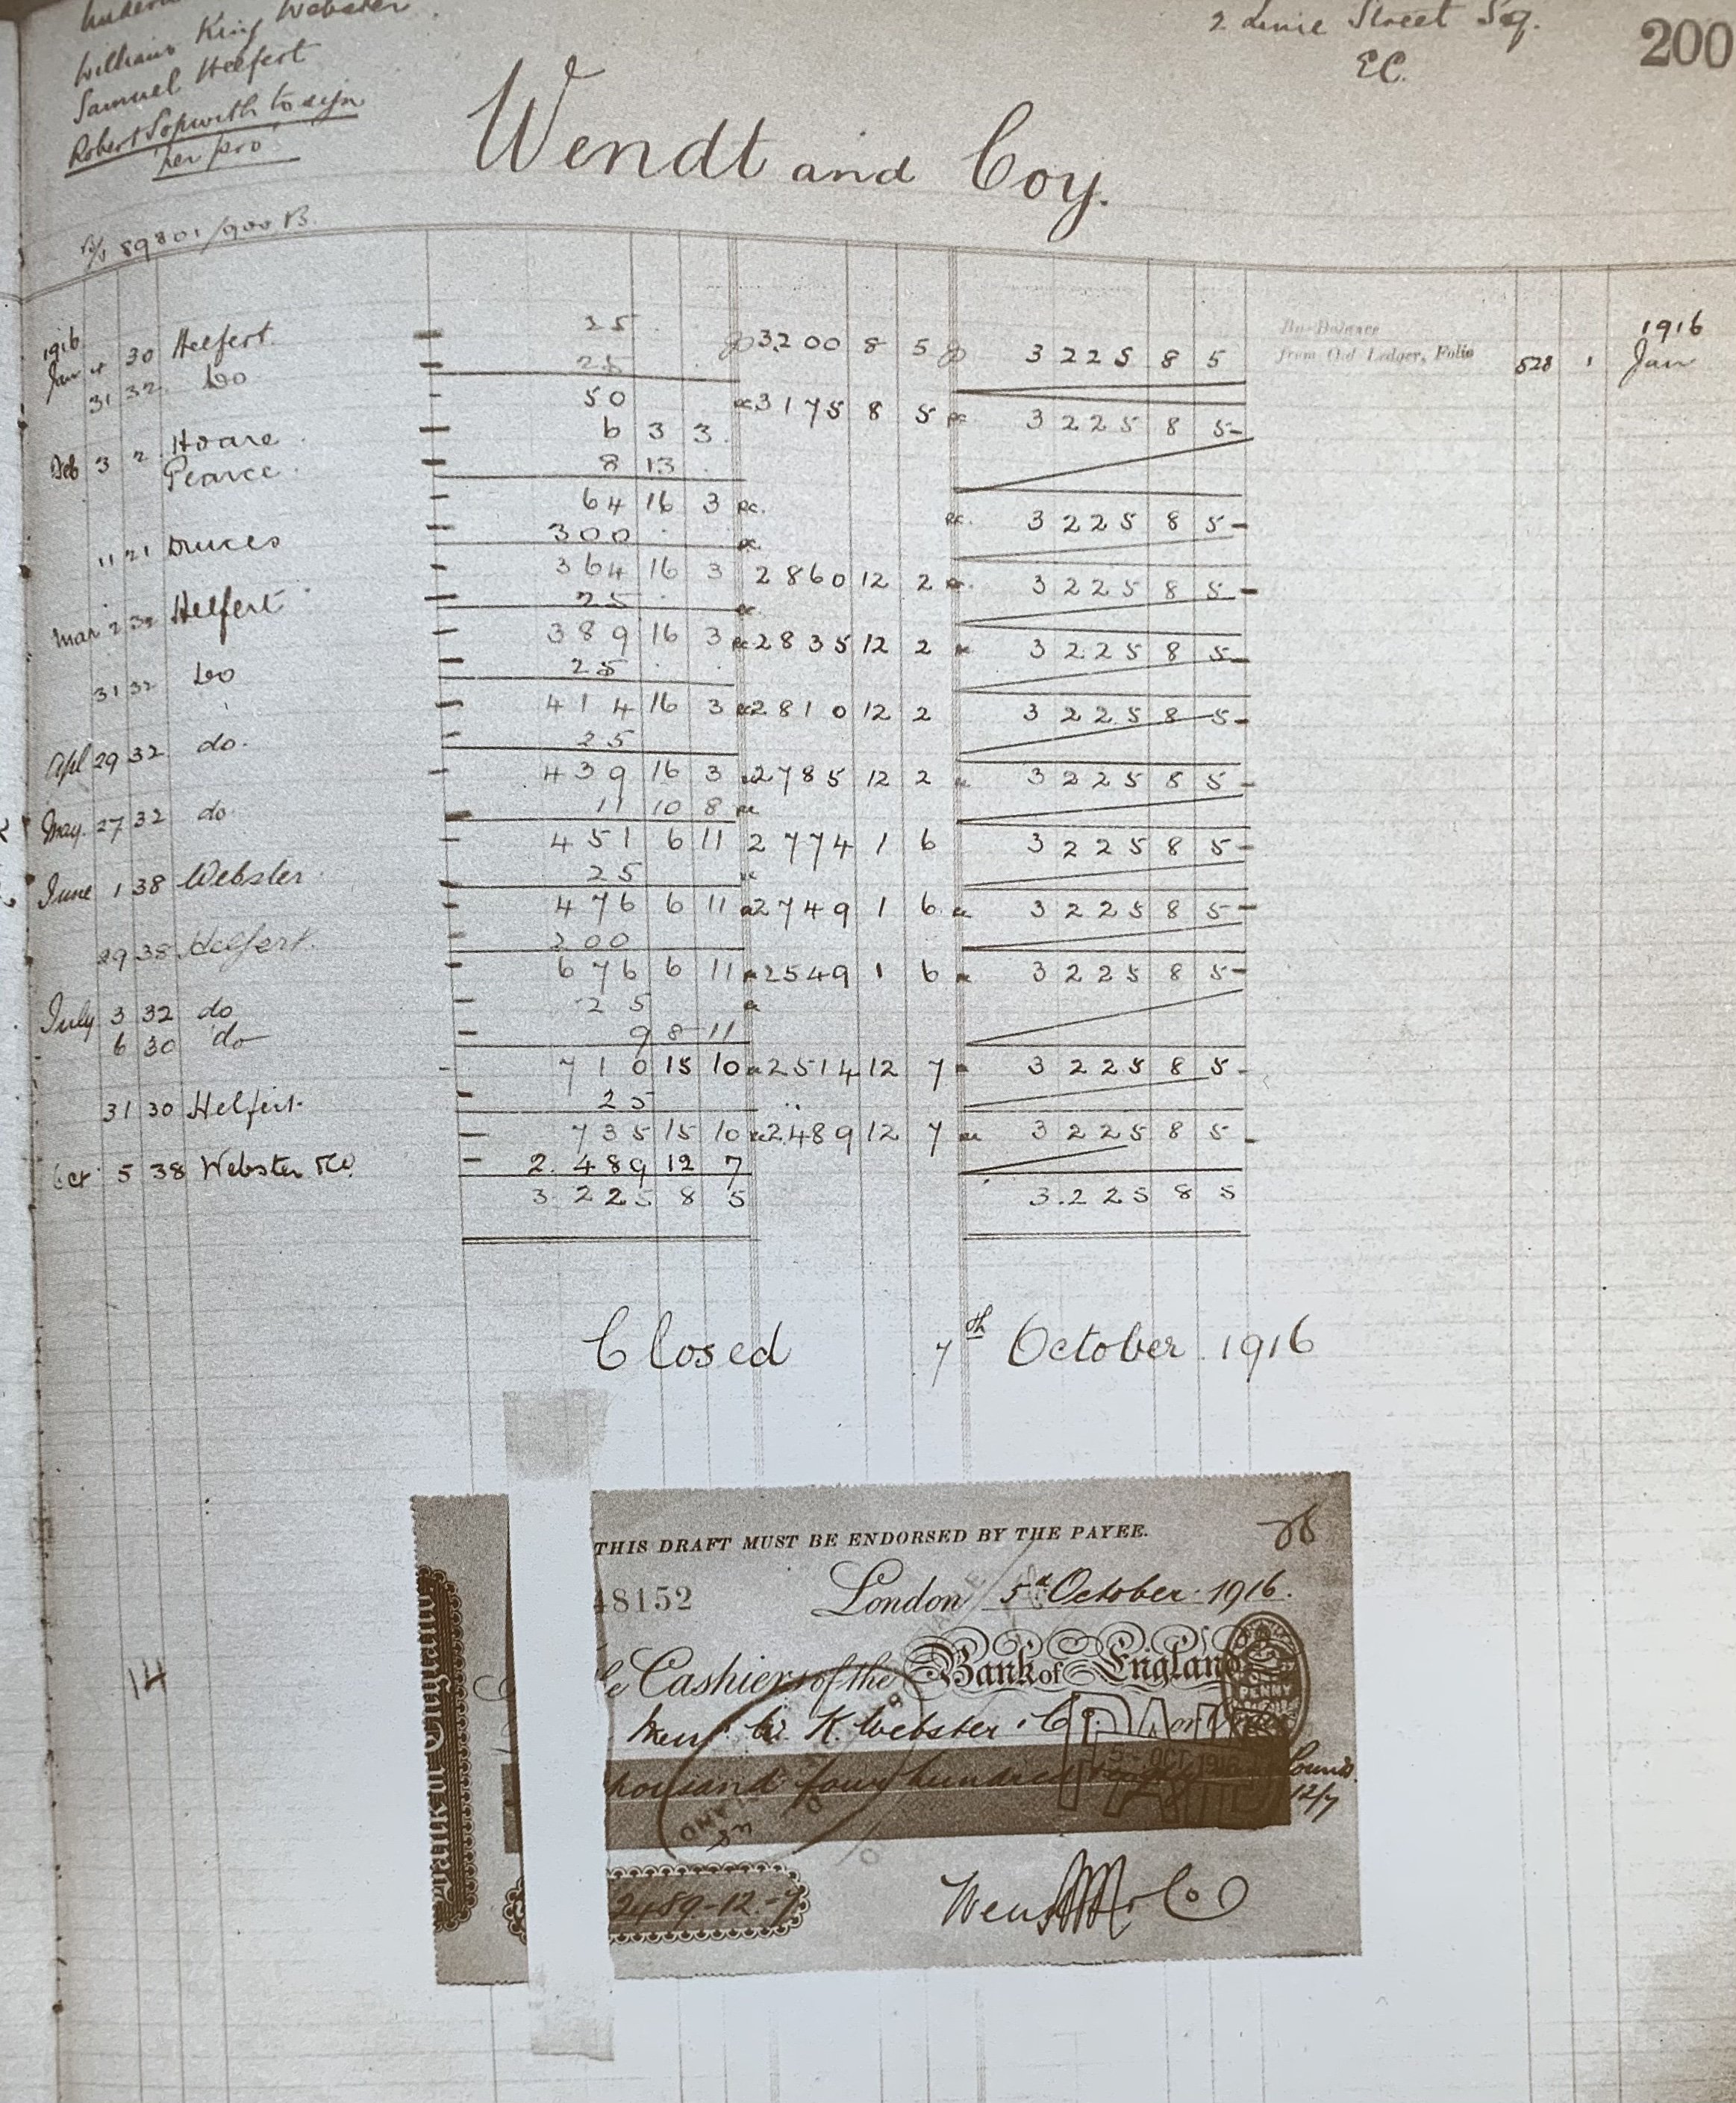 William King Webster
2 Lime Street Sq.
200
Samuel Helfert
E.C.
Robert Sopwith to sign
per pro
Wendt and Coy.
89801/900 B.
1916
25
3200 8 5
3225 8 5
By Balance
from Old Ledger, Folio
528 1
1916
Jan
Jan 4 30 Helfert
25
31 32 Do
50
3175 8 5
3225 8 5
Feb 3 2 Hoare
6 3 3
Pearce
8 13
64 16 3
3225 8 5
11 21 Druces
300
364 16 3
2860 12 2
3225 8 5
Mar 2 32 Helfert
25
389 16 3
2835 12 2
3225 8 5
31 32 Do
25
414 16 3
2810 12 2
3225 8 5
Apl 29 32 do.
25
439 16 3
2785 12 2
3225 8 5
May 27 32 do
11 10 8
451 6 11
2774 1 6
3225 8 5
June 1 38 Webster
25
476 6 11
2749 1 6
3225 8 5
29 38 Helfert
200
676 6 11
2549 1 6
3225 8 5
July 3 32 do
25
6 30 do
9 8 11
710 15 10
2514 12 7
3225 8 5
31 30 Helfert
25
735 15 10
2489 12 7
3225 8 5
Oct 5 38 Webster & Co
2.489 12 7
3225 8 5
3.225 8 5
Closed 7th October 1916
THIS DRAFT MUST BE ENDORSED BY THE PAYEE.
48152
London 5th October 1916.
Cashiers of the Bank of England
W. K. Webster & Co. or
PENNY
PAID
5 - OCT 1916
thousand four hundred
Pounds
12/7
2489-12-7
Wendt & Co
Bank of England
14